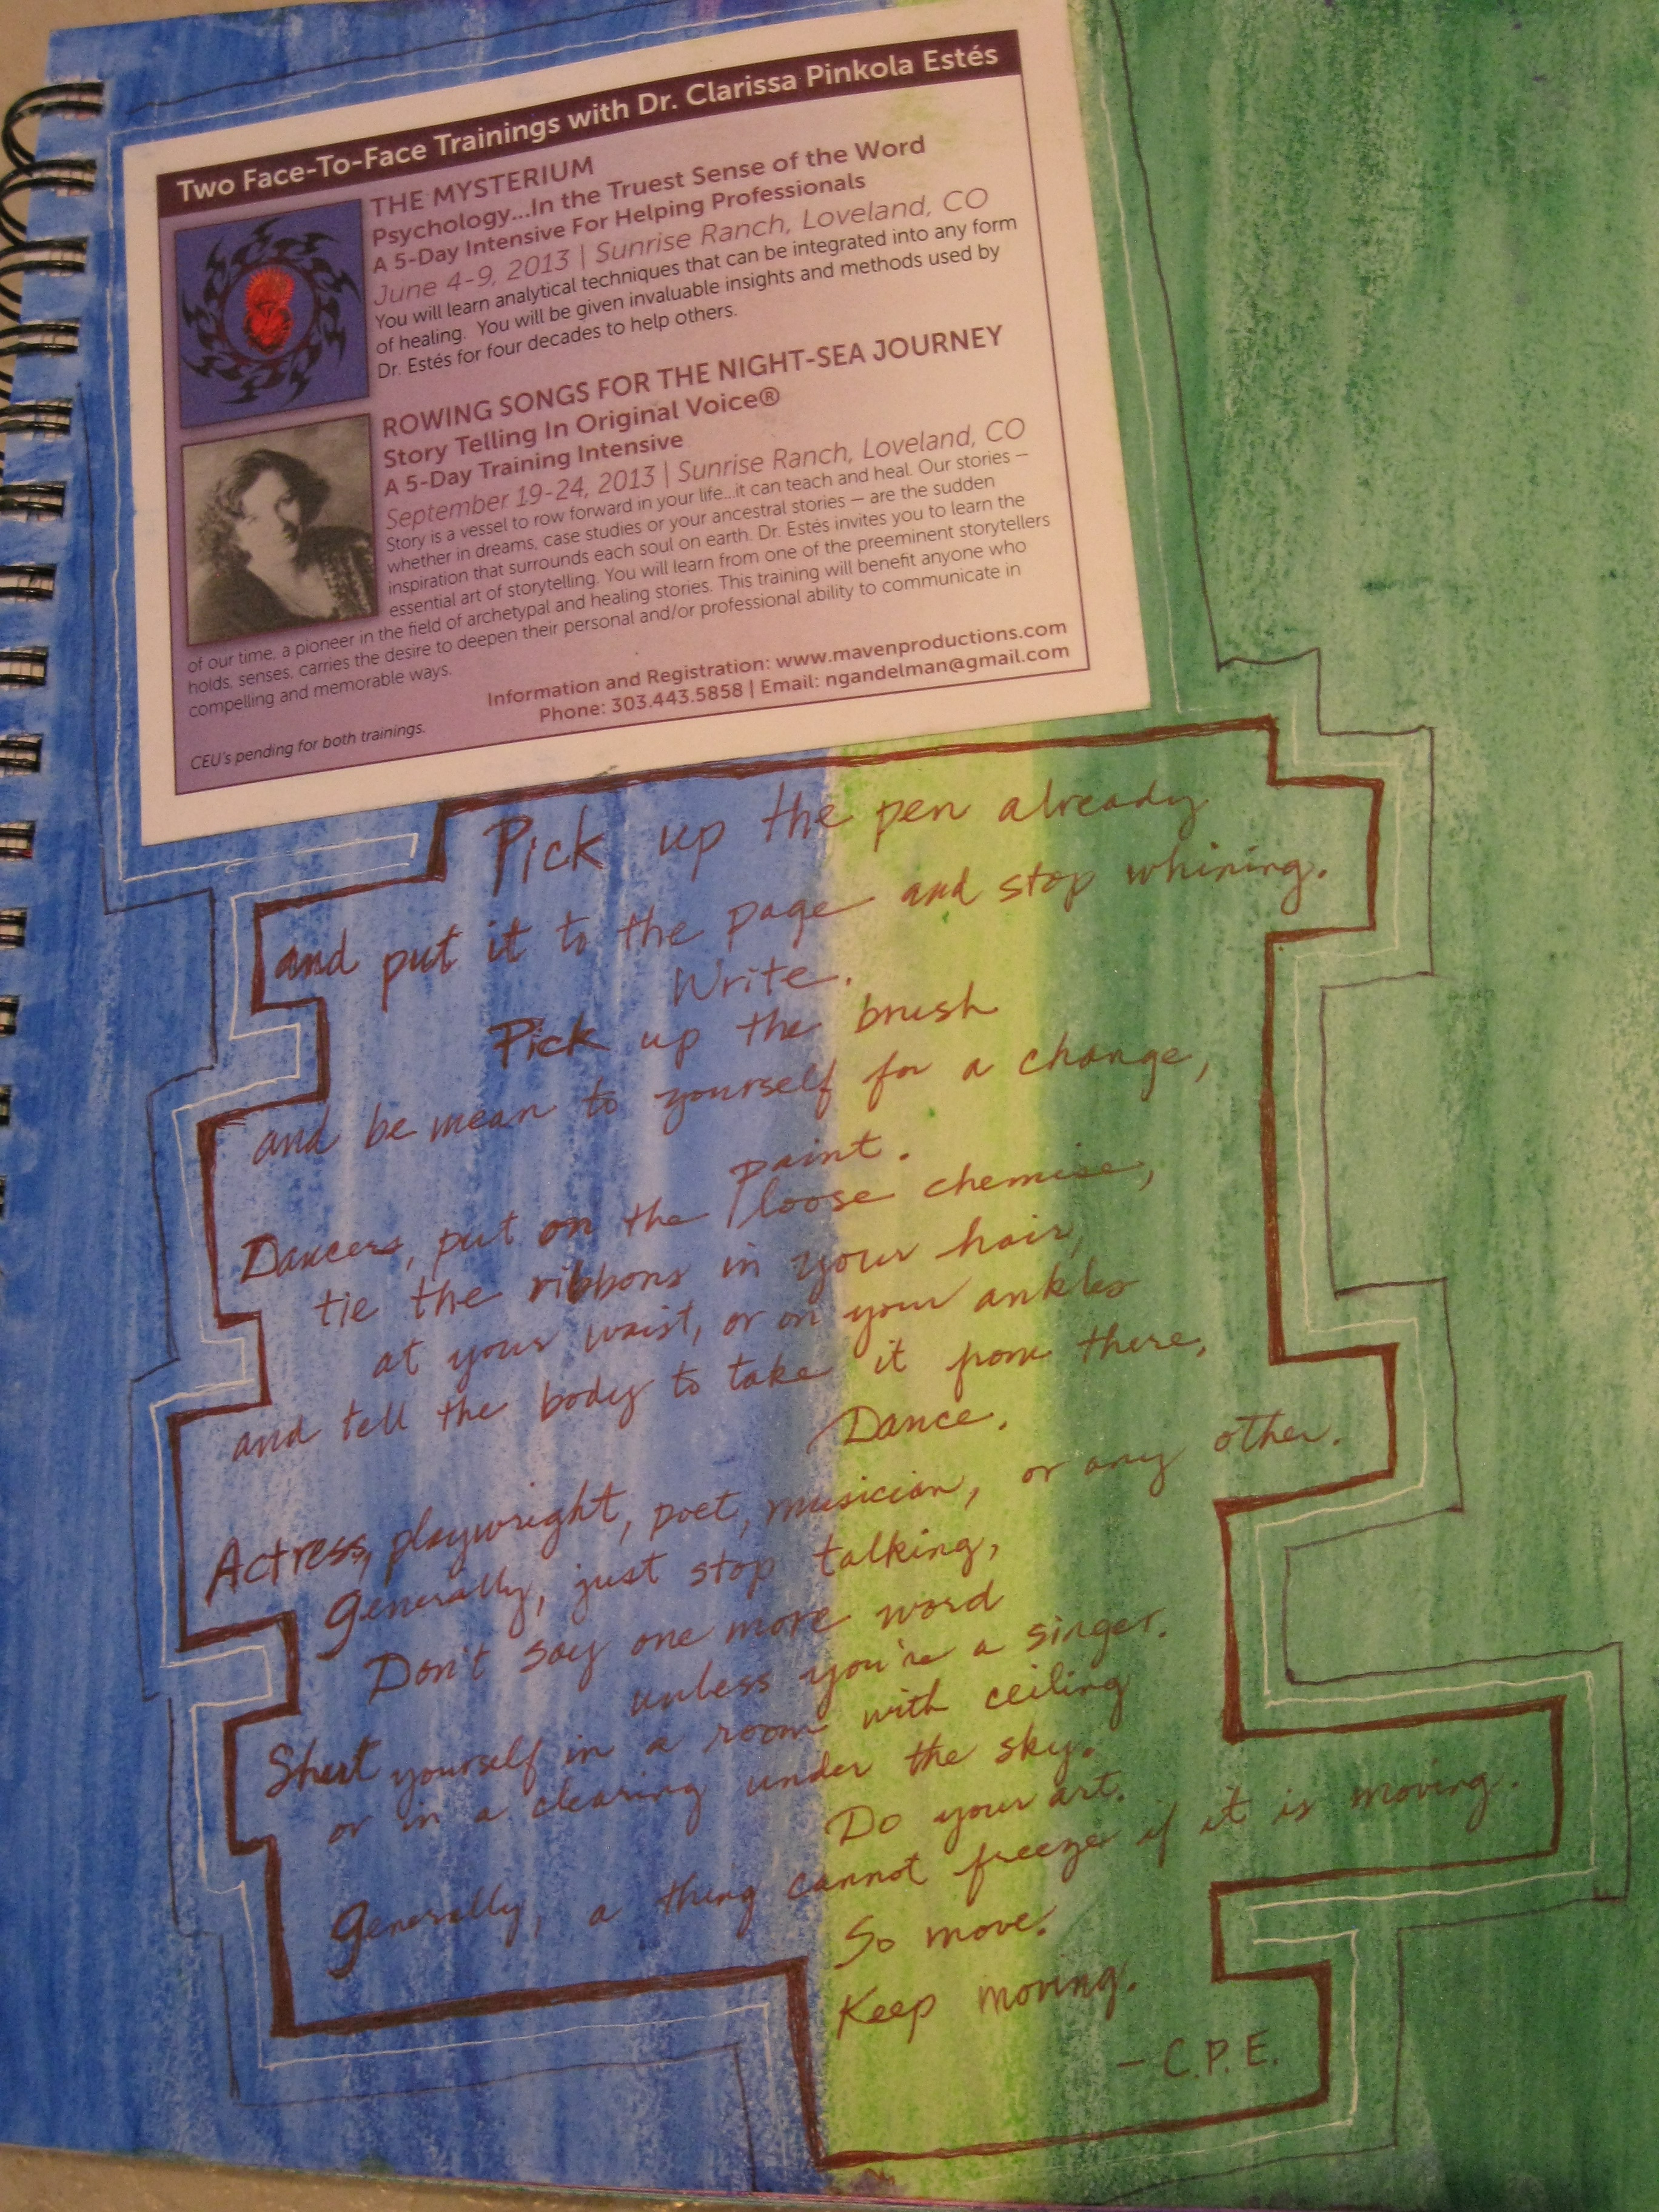 Two Face-To-Face Trainings with Dr. Clarissa Pinkola Estés
THE MYSTERIUM
Psychology...In the Truest Sense of the Word
A 5-Day Intensive For Helping Professionals
June 4-9, 2013 | Sunrise Ranch, Loveland, CO
You will learn analytical techniques that can be integrated into any form
of healing. You will be given invaluable insights and methods used by
Dr. Estés for four decades to help others.
ROWING SONGS FOR THE NIGHT-SEA JOURNEY
Story Telling In Original Voice®
A 5-Day Training Intensive
September 19-24, 2013 | Sunrise Ranch, Loveland, CO
Story is a vessel to row forward in your life...it can teach and heal. Our stories —
whether in dreams, case studies or your ancestral stories — are the sudden
inspiration that surrounds each soul on earth. Dr. Estés invites you to learn the
essential art of storytelling. You will learn from one of the preeminent storytellers
of our time, a pioneer in the field of archetypal and healing stories. This training will benefit anyone who
holds, senses, carries the desire to deepen their personal and/or professional ability to communicate in
compelling and memorable ways.
Information and Registration: www.mavenproductions.com
Phone: 303.443.5858 | Email: ngandelman@gmail.com
CEU's pending for both trainings.
Pick up the pen already
and put it to the page and stop whining.
Write.
Pick up the brush
and be mean to yourself for a change,
paint.
Dancers, put on the loose chemise,
tie the ribbons in your hair,
at your waist, or on your ankles
and tell the body to take it from there,
Dance.
Actress, playwright, poet, musician, or any other.
Generally, just stop talking,
Don't say one more word
unless you're a singer.
Shut yourself in a room with ceiling
or in a clearing under the sky.
Do your art.
Generally, a thing cannot freeze if it is moving.
So move.
Keep moving.
— C.P.E.